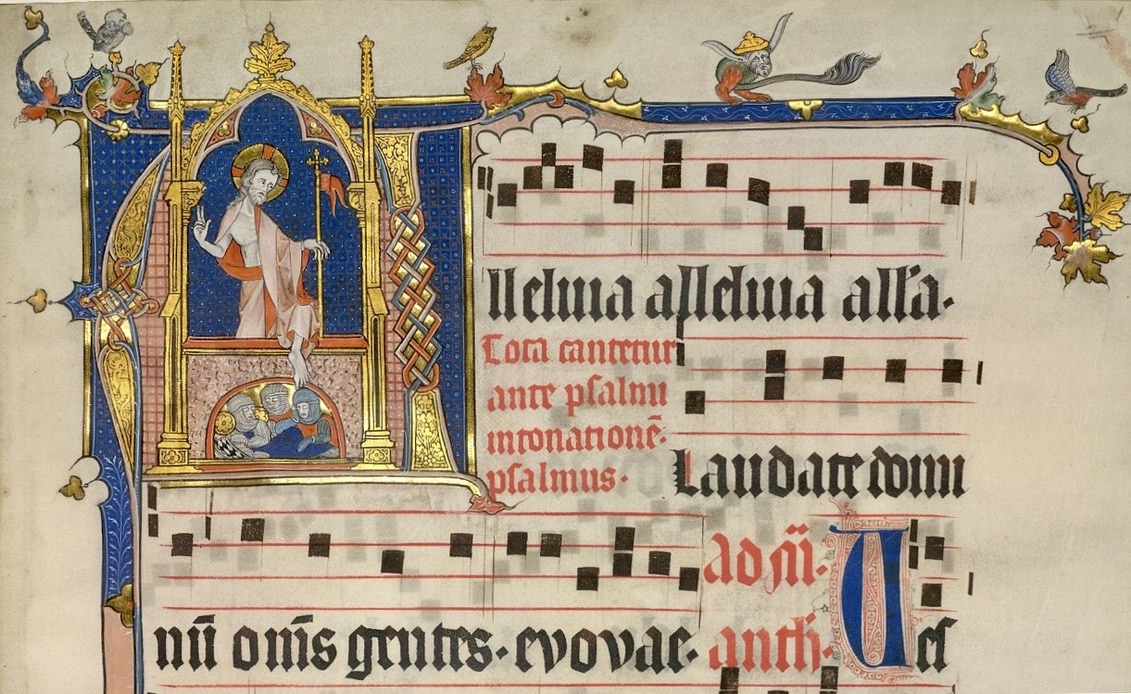 Alleluia alleluia all'a.
Tota cantetur
ante psalmi
intonationē.
psalmus. Laudate domi
nū om̄s gentes. evovae. ad m̄. anth. Ves